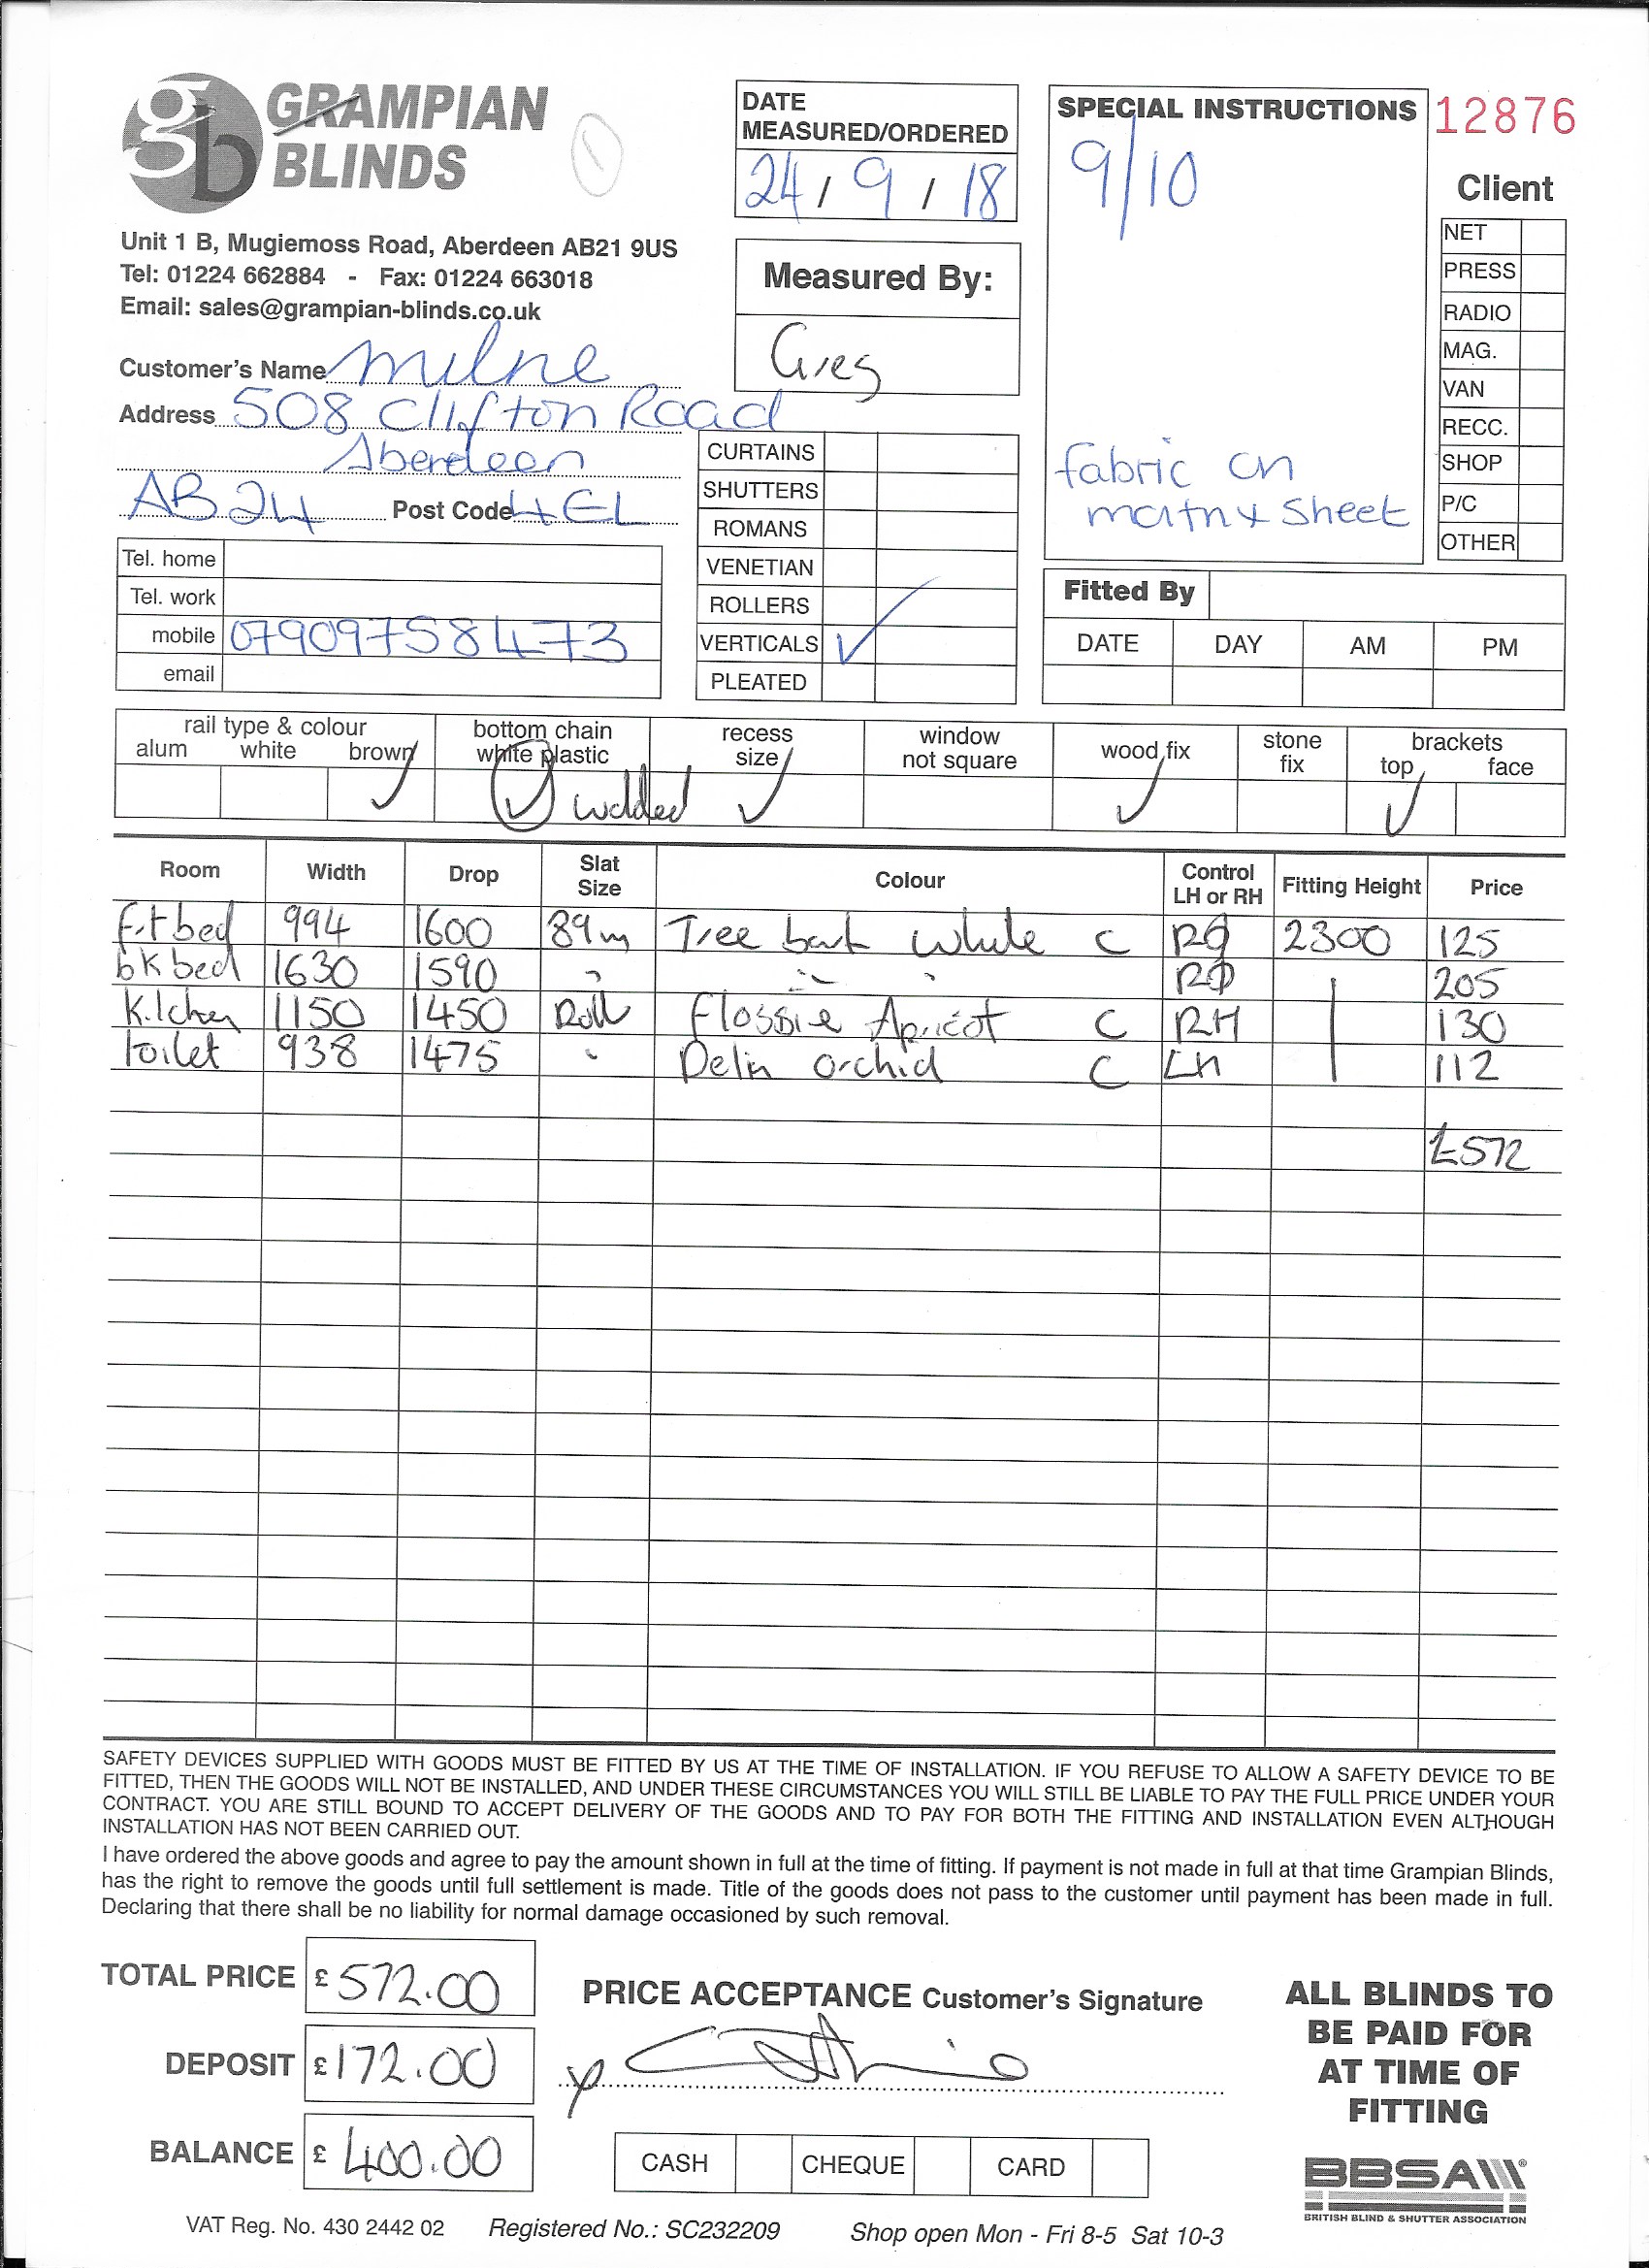 gb GRAMPIAN BLINDS
Unit 1 B, Mugiemoss Road, Aberdeen AB21 9US
Tel: 01224 662884 - Fax: 01224 663018
Email: sales@grampian-blinds.co.uk
Customer's Name Milne
Address 508 Clifton Road
Aberdeen
AB24 Post Code 4EL
Tel. home
Tel. work
mobile 07909758473
email
DATE MEASURED/ORDERED
24 / 9 / 18
Measured By:
Greg
CURTAINS
SHUTTERS
ROMANS
VENETIAN
ROLLERS
VERTICALS ✓
PLEATED
SPECIAL INSTRUCTIONS
9/10
fabric on
matrix sheet
12876
Client
NET
PRESS
RADIO
MAG.
VAN
RECC.
SHOP
P/C
OTHER
Fitted By
DATE DAY AM PM
rail type & colour bottom chain recess window wood fix stone brackets
alum white brown white plastic size not square fix top face
✓ ✓ welded ✓ ✓ ✓
Room Width Drop Slat Size Colour Control LH or RH Fitting Height Price
frt bed 994 1600 89m Tree bark White C 2300 125
bk bed 1630 1590 " " " 205
Kitchen 1150 1450 Roll Flossie Apricot C RH 130
toilet 938 1475 " orchid C LH 112
£572
SAFETY DEVICES SUPPLIED WITH GOODS MUST BE FITTED BY US AT THE TIME OF INSTALLATION. IF YOU REFUSE TO ALLOW A SAFETY DEVICE TO BE
FITTED, THEN THE GOODS WILL NOT BE INSTALLED, AND UNDER THESE CIRCUMSTANCES YOU WILL STILL BE LIABLE TO PAY THE FULL PRICE UNDER YOUR
CONTRACT. YOU ARE STILL BOUND TO ACCEPT DELIVERY OF THE GOODS AND TO PAY FOR BOTH THE FITTING AND INSTALLATION EVEN ALTHOUGH
INSTALLATION HAS NOT BEEN CARRIED OUT.
I have ordered the above goods and agree to pay the amount shown in full at the time of fitting. If payment is not made in full at that time Grampian Blinds,
has the right to remove the goods until full settlement is made. Title of the goods does not pass to the customer until payment has been made in full.
Declaring that there shall be no liability for normal damage occasioned by such removal.
TOTAL PRICE £ 572.00
DEPOSIT £ 172.00
BALANCE £ 400.00
PRICE ACCEPTANCE Customer's Signature
x
CASH CHEQUE CARD
ALL BLINDS TO
BE PAID FOR
AT TIME OF
FITTING
BBSA
BRITISH BLIND & SHUTTER ASSOCIATION
VAT Reg. No. 430 2442 02 Registered No.: SC232209 Shop open Mon - Fri 8-5 Sat 10-3